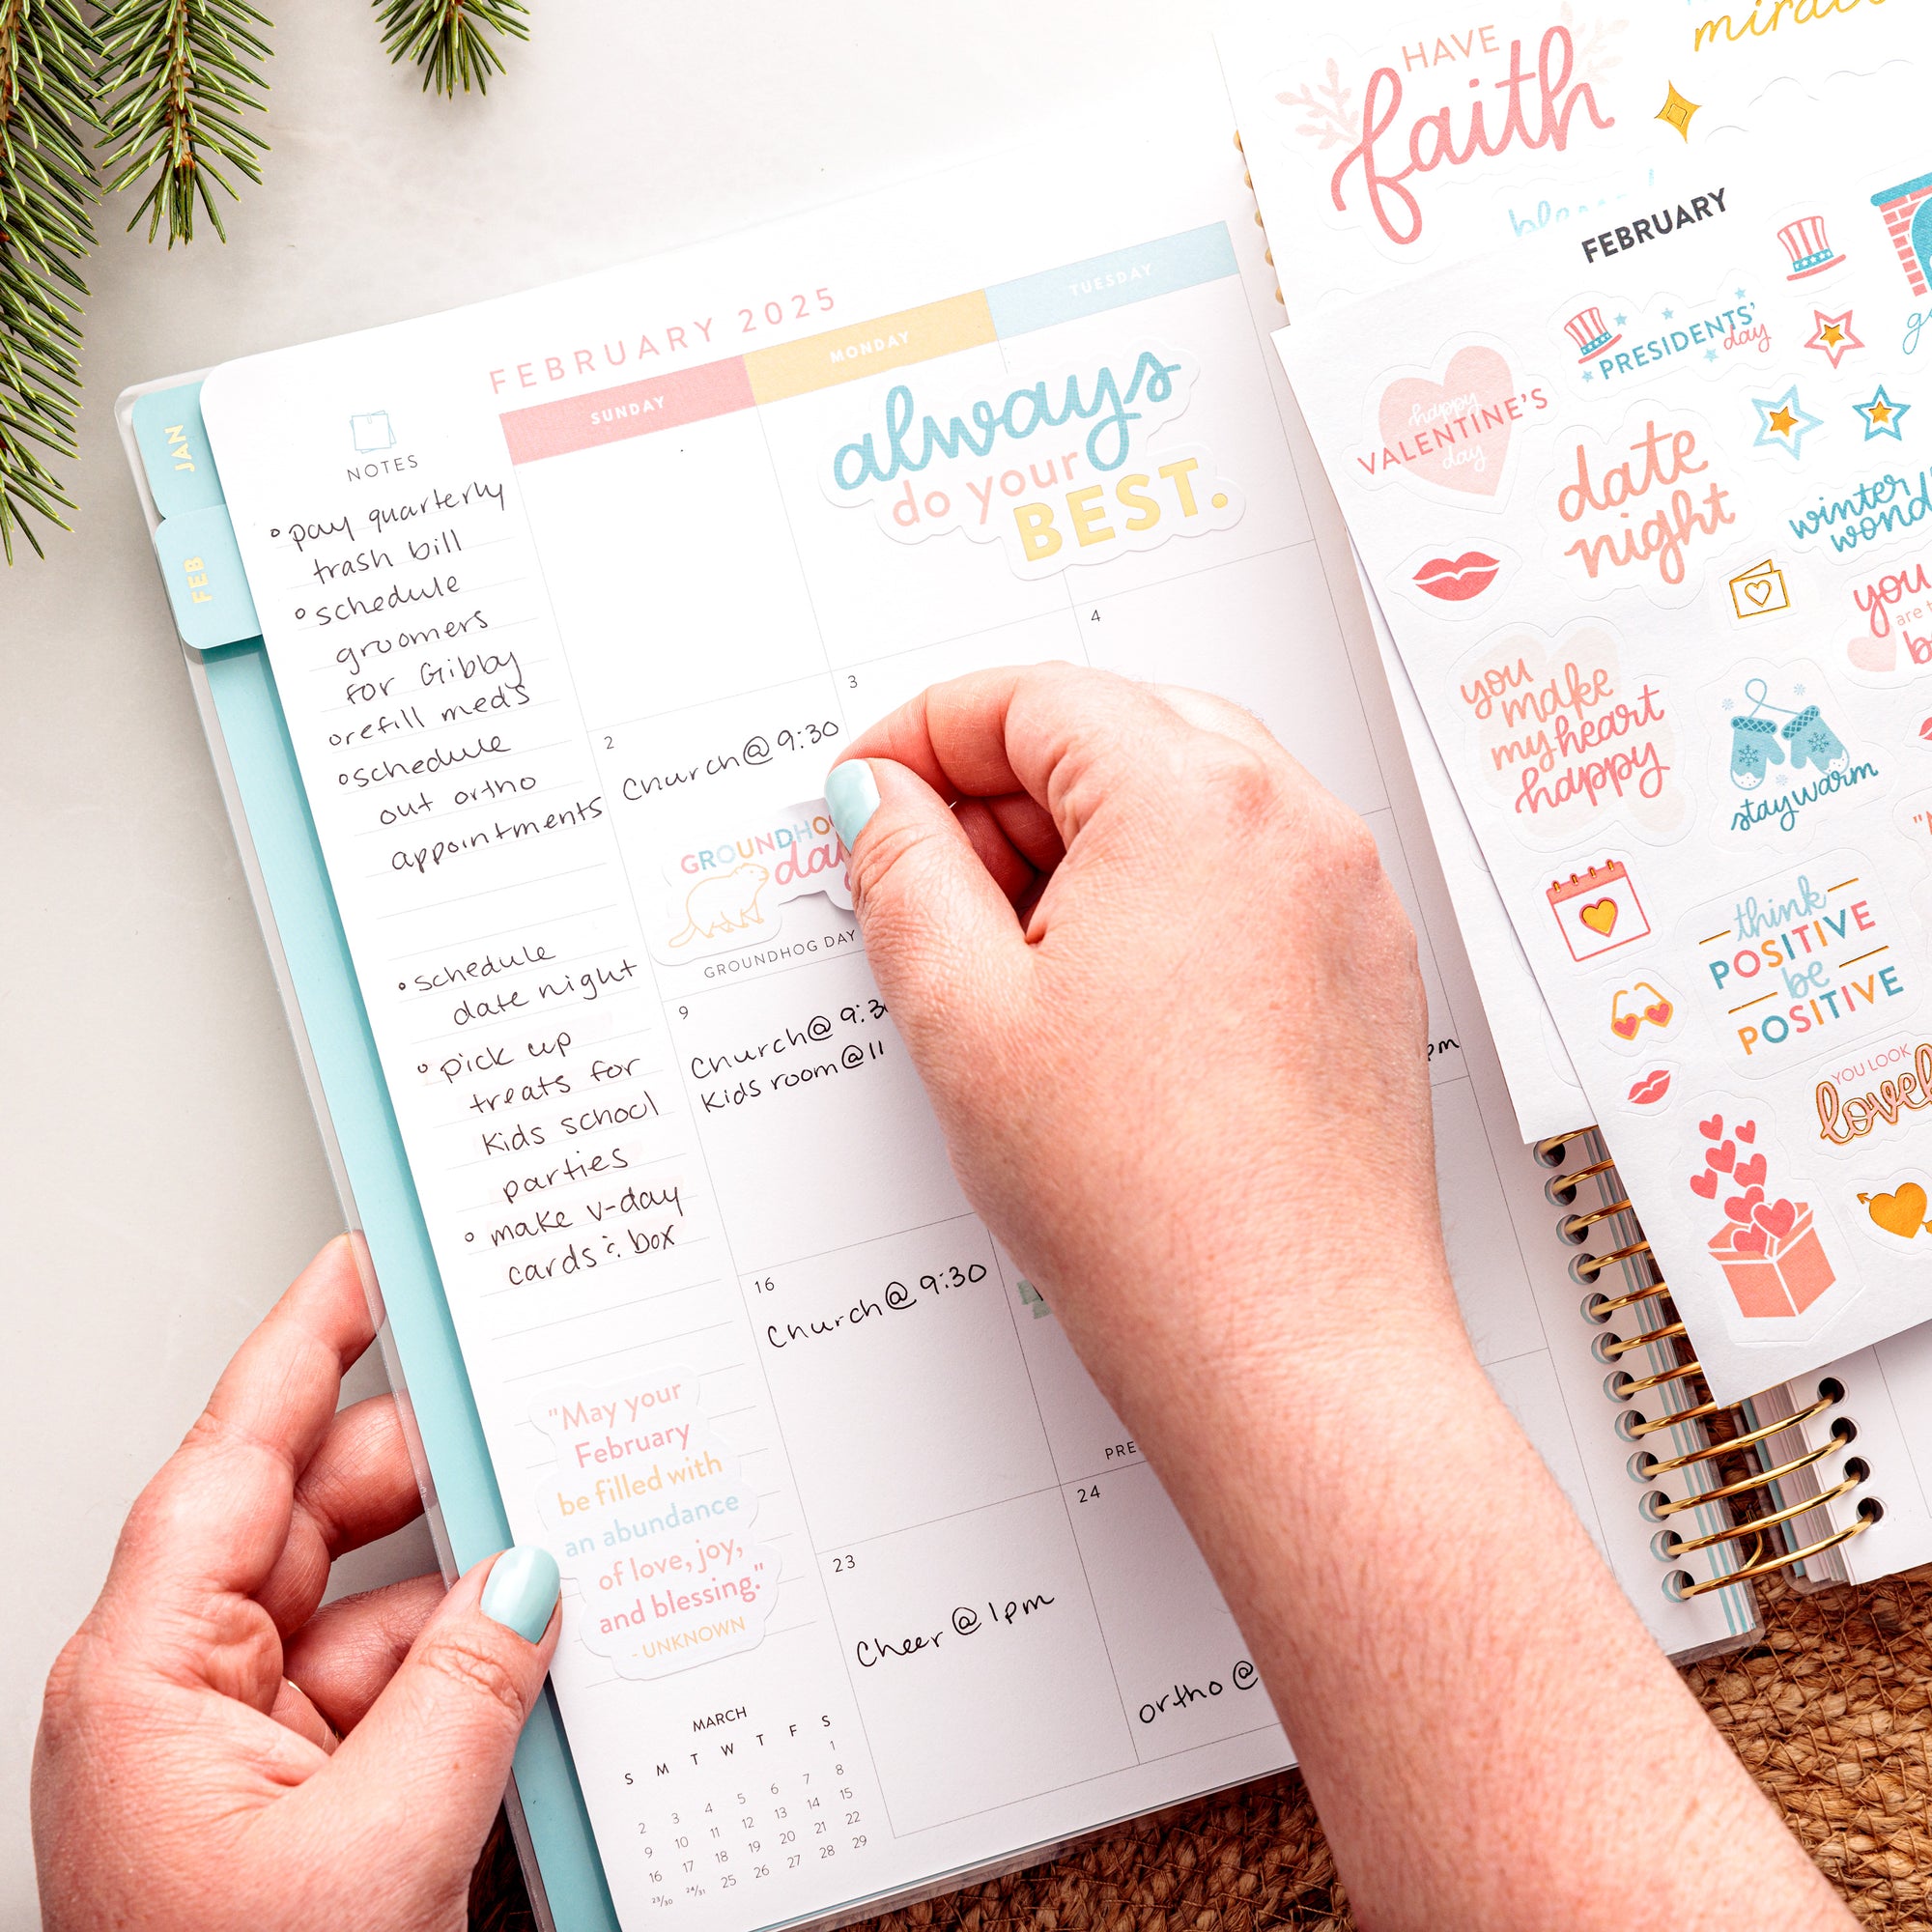 JAN
FEB
FEBRUARY 2025
SUNDAY
MONDAY
TUESDAY
NOTES
pay quarterly
trash bill
schedule
groomers
for Gibby
refill meds
schedule
out ortho
appointments
schedule
date night
pick up
treats for
kids school
parties
make v-day
cards & box
"May your
February
be filled with
an abundance
of love, joy,
and blessing."
- UNKNOWN
MARCH
S M T W T F S
1
2 3 4 5 6 7 8
9 10 11 12 13 14 15
16 17 18 19 20 21 22
23/30 24/31 25 26 27 28 29
always
do your
BEST.
2
3
4
Church @ 9:30
day
GROUNDHOG DAY
9
Church @ 9:30
Kids room @ 11
pm
16
Church @ 9:30
23
24
Cheer @ 1pm
ortho @
HAVE
faith
FEBRUARY
PRESIDENTS'
day
happy
VALENTINE'S
day
date
night
winter
you
make
my heart
happy
you
stay warm
think
POSITIVE
be
POSITIVE
YOU LOOK